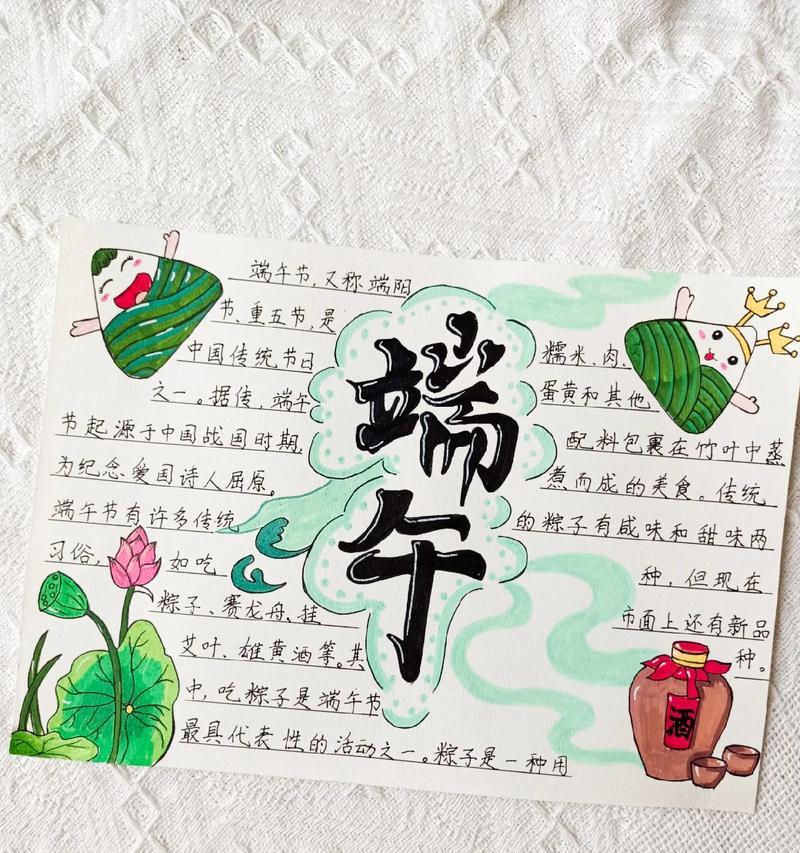 端午节,又称端阳
节、重五节,是
中国传统节日
之一。据传,端午
节起源于中国战国时期,
为纪念爱国诗人屈原。
端午节有许多传统
习俗,如吃
粽子、赛龙舟、挂
艾叶、雄黄酒等。其
中,吃粽子是端午节
最具代表性的活动之一。粽子是一种用
端午
糯米、肉、
蛋黄和其他
配料包裹在竹叶中蒸
煮而成的美食。传统
的粽子有咸味和甜味两
种,但现在
市面上还有新品
种。
酒